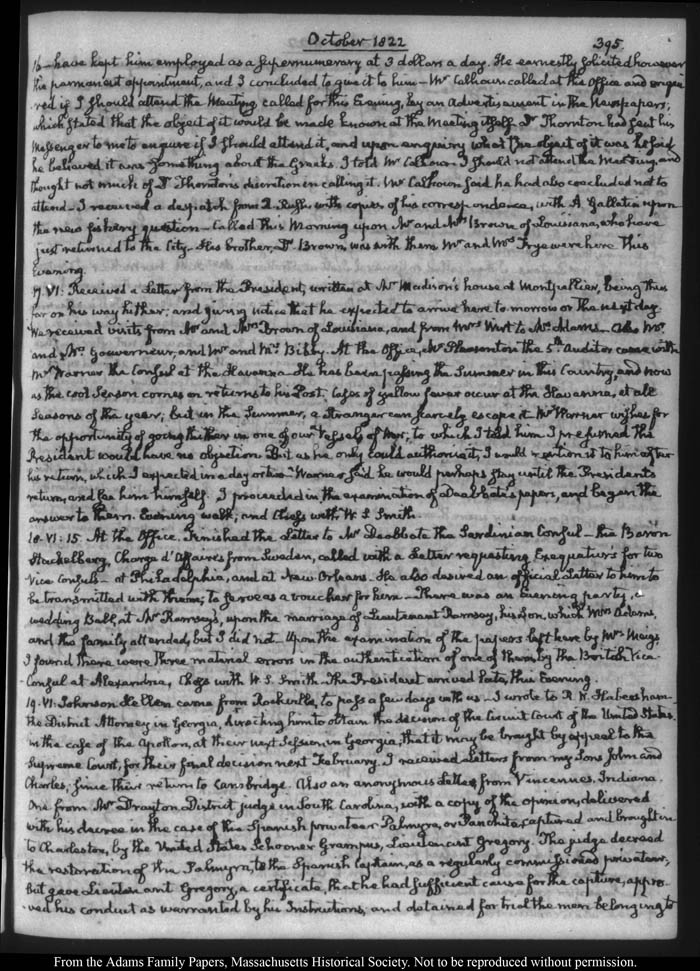 October 1822
395.
16— have kept him employed as a Supernumerary at 3 dollars a day. He earnestly solicited however
the permanent appointment, and I concluded to give it to him— Mr Calhoun called at the Office and enqui-
red if I should attend the Meeting called for this Evening, by an Advertisement in the Newspapers,
which stated that the object of it would be made known at the Meeting itself. Dr Thornton had sent his
Messenger to me to enquire if I should attend it, and upon enquiring what the object of it was he said
he believed it was something about the Greeks. I told Mr Calhoun I should not attend the Meeting and
thought not much of Dr Thornton's discretion in calling it. Mr Calhoun said he had also concluded not to
attend— I received a despatch from R. Rush with copies of his correspondence, with A Gallatin upon
the new fishery question— Called this Morning upon Mr and Mrs Brown of Louisiana, who have
just returned to the City. His brother, Dr Brown, was with them Mr and Mrs Frye were here this
Evening.
17. VI: Received a Letter from the President, written at Mr Madison's house at Montpellier, being thus
far on his way hither; and giving notice that he expected to arrive here to morrow or the next day.
We received visits from Mr and Mrs Brown of Louisiana, and from Mrs Wirt to Mrs Adams— Also Mr
and Mrs Gouverneur, and Mr and Mrs Bibby. At the Office, Mr Pleasonton the 5th Auditor came with
Mr Warner the Consul at the Havanna— He has been passing the Summer in this Country, and now
as the cool Season comes on returns to his Post. Cases of yellow fever occur at the Havanna, at all
Seasons of the year; but in the Summer, a Stranger can scarcely escape it Mr Warner wishes for
the opportunity of going thither in one of our Vessels of War; to which I told him I presumed the
President would have no objection. But as he only could authorise it, I would mention it to him after
his return, which I expected in a day or two— Warner said he would perhaps stay until the President's
return, and see him himself. I proceeded in the examination of Deabbate's papers, and began the
answer to them. Evening walk, and Chess with W. S Smith.
18. VI: 15. At the Office. Finished the Letter to Mr Deabbate the Sardinian Consul— the Baron
Stackelberg, Chargé d'Affaires from Sweden, called with a Letter requesting Exequaturs for two
Vice Consuls— at Philadelphia, and at New Orleans. He also desired an official Letter to him to
be transmitted with them; to serve as a voucher for him— There was an evening party, a
wedding Ball, at Mr Ramsay's, upon the marriage of Lieutenant Ramsay, his Son, which Mrs Adams,
and the family attended, but I did not. Upon the examination of the papers left here by Mrs Meigs
I found there were three material errors in the authentication of one of them by the British Vice-
Consul at Alexandria, Chess with W. S. Smith. The President arrived late, this Evening.
19. VI: Johnson Hellen came from Rockville, to pass a few days with us— I wrote to R. W. Habersham—
the District Attorney in Georgia, directing him to obtain the decision of the Circuit Court of the United States.
in the case of the Apollon, at their next Session in Georgia, that it may be brought by appeal to the
Supreme Court, for their final decision next February. I received Letters from my Sons John and
Charles, since their return to Cambridge. Also an anonymous Letter, from Vincennes, Indiana.
One from Mr Drayton, District judge in South Carolina, with a copy of the opinion, delivered
with his decree in the case of the Spanish privateer Palmyra, or Panchita, captured and brought in
to Charleston, by the United States Schooner Grampus, Lieutenant Gregory. The judge decreed
the restoration of the Palmyra, to the Spanish Captain, as a regularly commissioned privateer,
but gave Lieutenant Gregory, a certificate, that he had sufficient cause for the capture, appro-
ved his conduct as warranted by his Instructions, and detained for trial the men belonging to
From the Adams Family Papers, Massachusetts Historical Society. Not to be reproduced without permission.